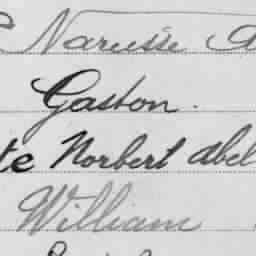 Narcisse
Gaston.
te Norbert Abel
William